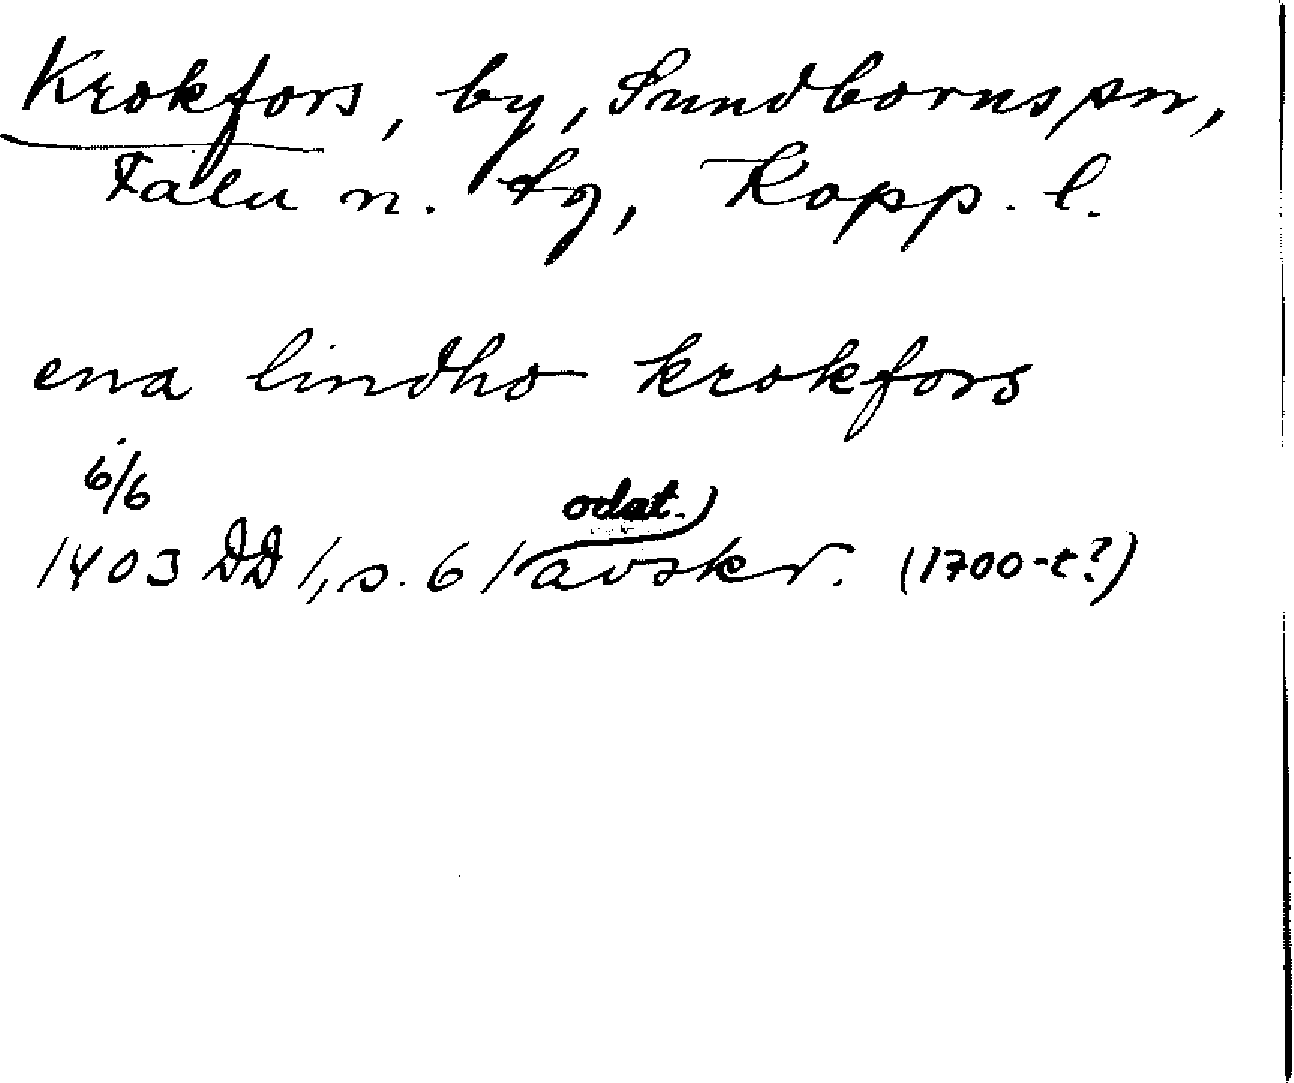 Krokfors, by, Sundborns sn,
Falu n. tg, Kopp. l.
ena lindho krokfors
6/6
odat.
1403 DD 1, s. 61 avskr. (1700-t?)